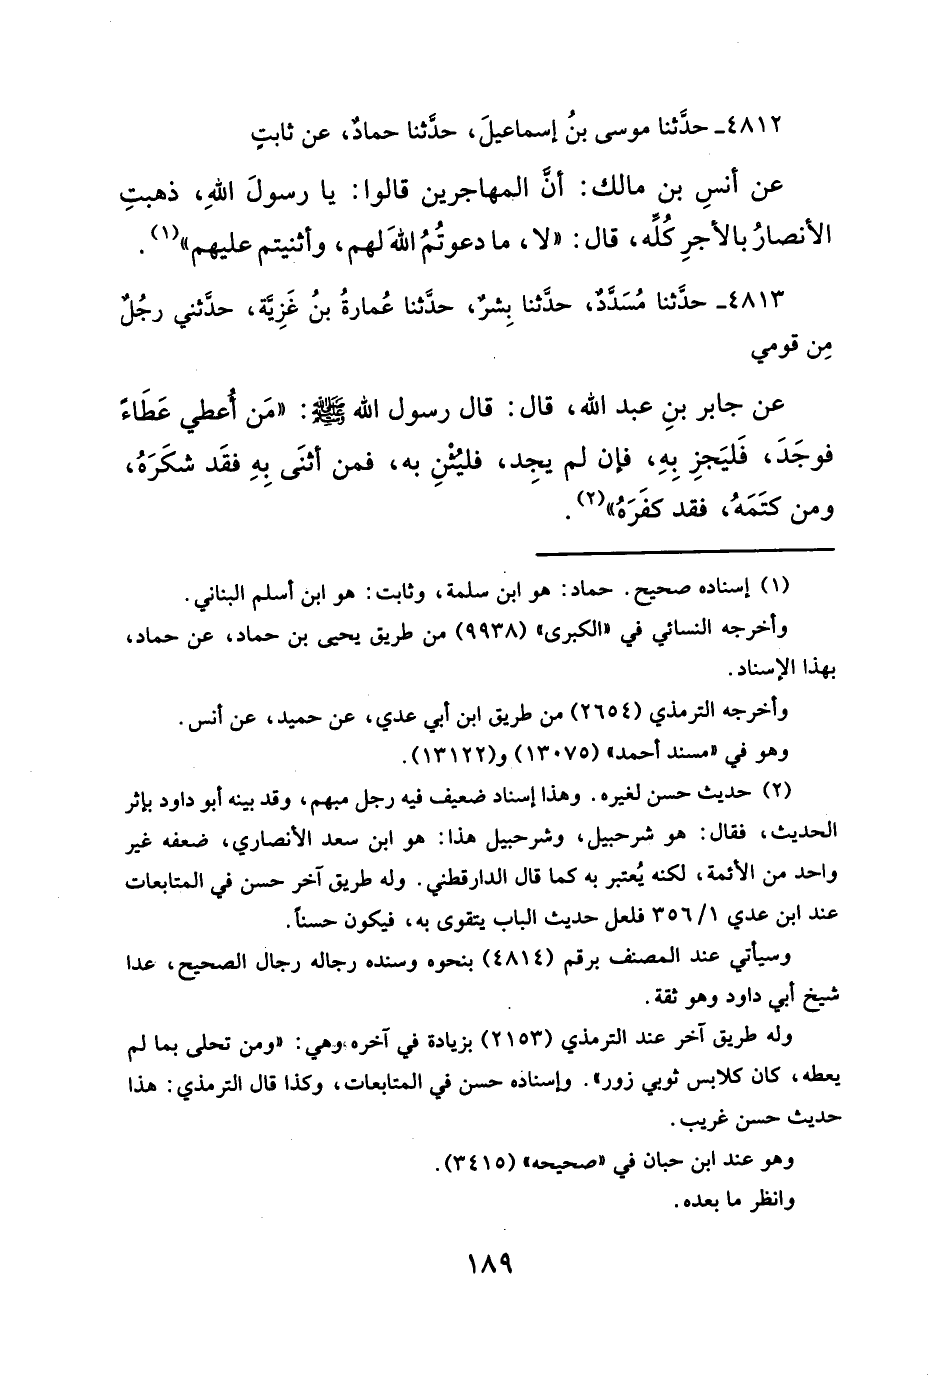 ٤٨١٢ـ حدَّثنا موسى بنُ إسماعيلَ، حدَّثنا حمادٌ، عن ثابتٍ
عن أنسِ بن مالك: أنَّ المهاجرين قالوا: يا رسولَ اللهِ، ذهبتِ
الأنصارُ بالأجرِ كُلِّه، قال: «لا، ما دعوتُمُ اللهَ لهم، وأثنيتم عليهم»(١).
٤٨١٣ـ حدَّثنا مُسَدَّدٌ، حدَّثنا بِشرٌ، حدَّثنا عُمارةُ بنُ غَزِيَّة، حدَّثني رجُلٌ
مِن قومي
عن جابر بنِ عبد الله، قال: قال رسول الله ﷺ: «مَن أُعطي عَطَاءً
فوجَدَ، فَليَجزِ بِهِ، فإن لم يجِد، فليُثْنِ به، فمن أثنَى بِهِ فقَد شكَرَهُ،
ومن كتَمَهُ، فقد كفَرَهُ»(٢).
(١) إسناده صحيح. حماد: هو ابن سلمة، وثابت: هو ابن أسلم البناني.
وأخرجه النسائي في «الكبرى» (٩٩٣٨) من طريق يحيى بن حماد، عن حماد،
بهذا الإسناد.
وأخرجه الترمذي (٢٦٥٤) من طريق ابن أبي عدي، عن حميد، عن أنس.
وهو في «مسند أحمد» (١٣٠٧٥) و(١٣١٢٢).
(٢) حديث حسن لغيره. وهذا إسناد ضعيف فيه رجل مبهم، وقد بينه أبو داود بإثر
الحديث، فقال: هو شرحبيل، وشرحبيل هذا: هو ابن سعد الأنصاري، ضعفه غير
واحد من الأئمة، لكنه يُعتبر به كما قال الدارقطني. وله طريق آخر حسن في المتابعات
عند ابن عدي ١/ ٣٥٦ فلعل حديث الباب يتقوى به، فيكون حسناً.
وسيأتي عند المصنف برقم (٤٨١٤) بنحوه وسنده رجاله رجال الصحيح، عدا
شيخ أبي داود وهو ثقة.
وله طريق آخر عند الترمذي (٢١٥٣) بزيادة في آخره وهي: «ومن تحلى بما لم
يعطه، كان كلابس ثوبي زور». وإسناده حسن في المتابعات، وكذا قال الترمذي: هذا
حديث حسن غريب.
وهو عند ابن حبان في «صحيحه» (٣٤١٥).
وانظر ما بعده.
١٨٩